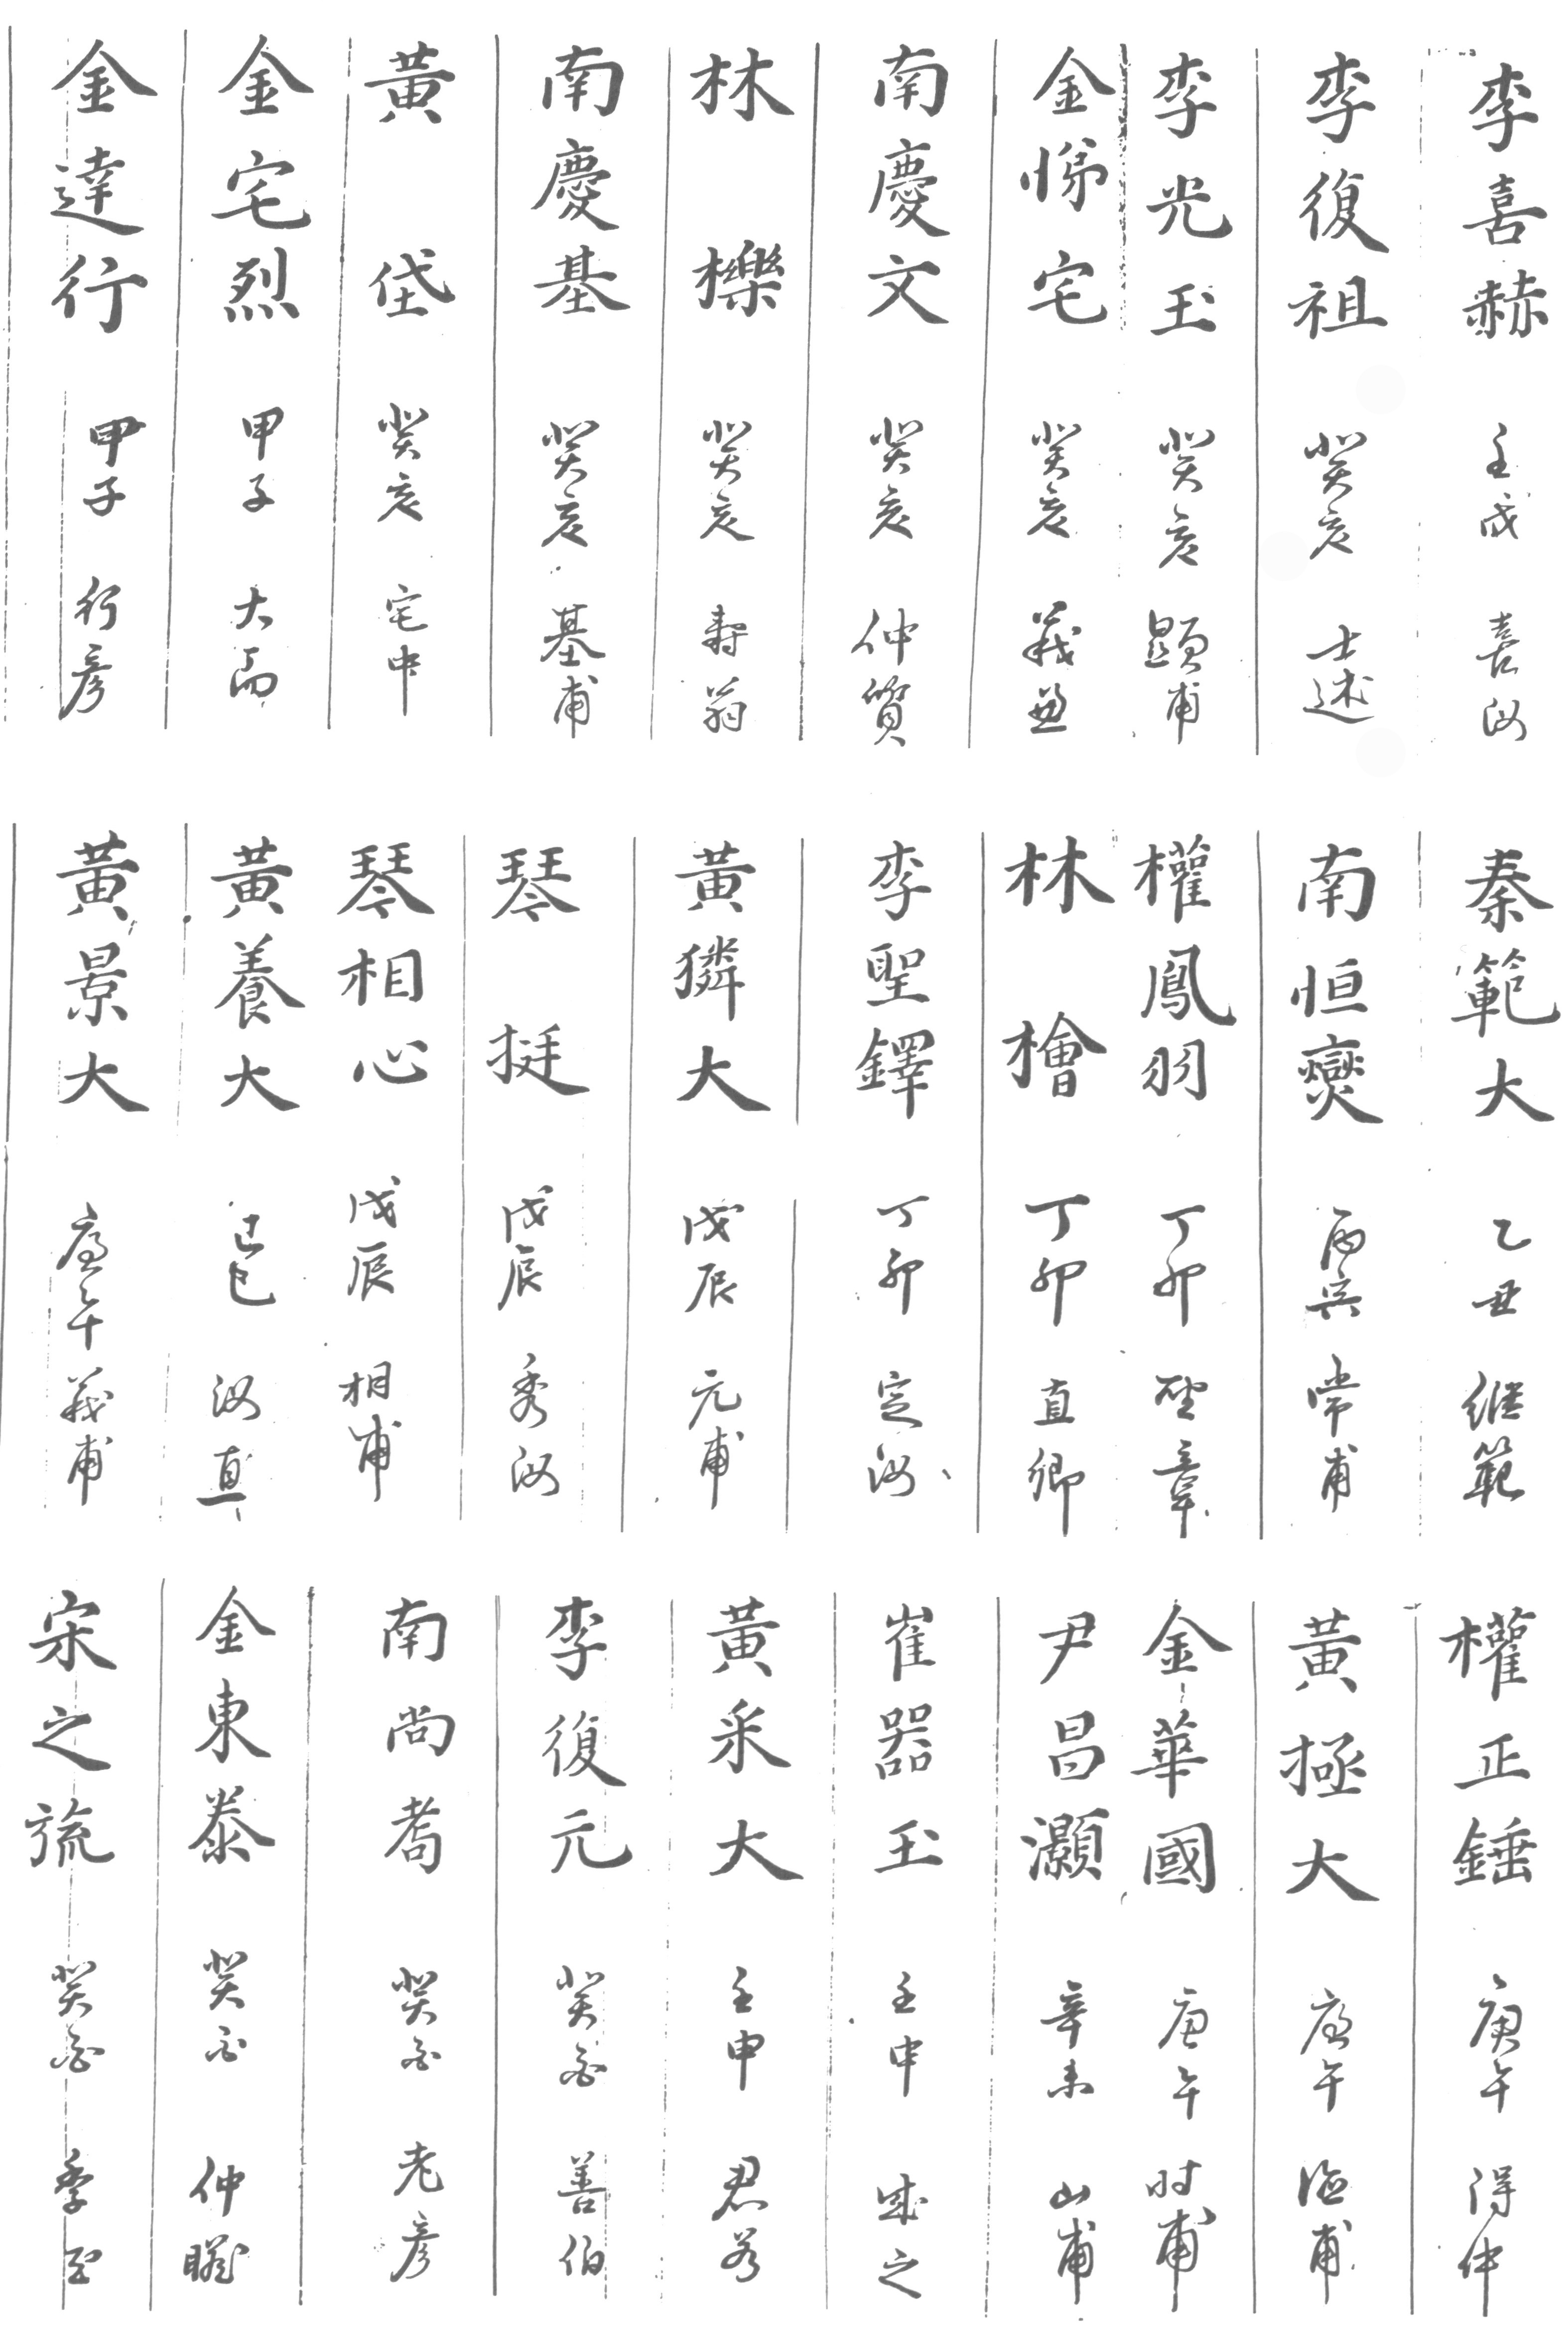 李喜赫 壬戌 喜汝
李復祖 癸亥 士述
李光玉 癸亥 顯甫
金悌宅 癸亥 義
南慶文 癸亥 仲質
林櫟 癸亥 壽翁
南慶基 癸亥 基甫
黃垈 癸亥 宅中
金宅烈 甲子 大而
金達行 甲子 行彦
秦範大 乙丑 継範
南恒燮 丙寅 常甫
權鳳羽 丁卯 聖章
林檜 丁卯 直卿
李聖鐸 丁卯 定汝
黃獜大 戊辰 元甫
琴挺 戊辰 秀汝
琴相心 戊辰 相甫
黃養大 己巳 汝直
黃景大 庚午 義甫
權正錘 庚午 得中
黃極大 庚午 極甫
金華國 庚午 时甫
尹昌灝 辛未 山甫
崔器玉 壬申 成之
黃采大 壬申 君若
李復元 癸酉 善伯
南尚耉 癸酉 老彦
金東泰 癸酉 仲瞻
宋之旒 癸酉 季玉